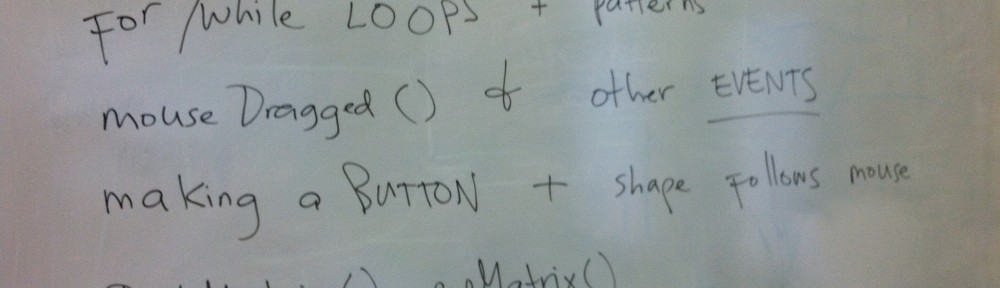 For/while LOOPS + patterns
mouseDragged() & other EVENTS
making a BUTTON + shape follows mouse
Matrix()